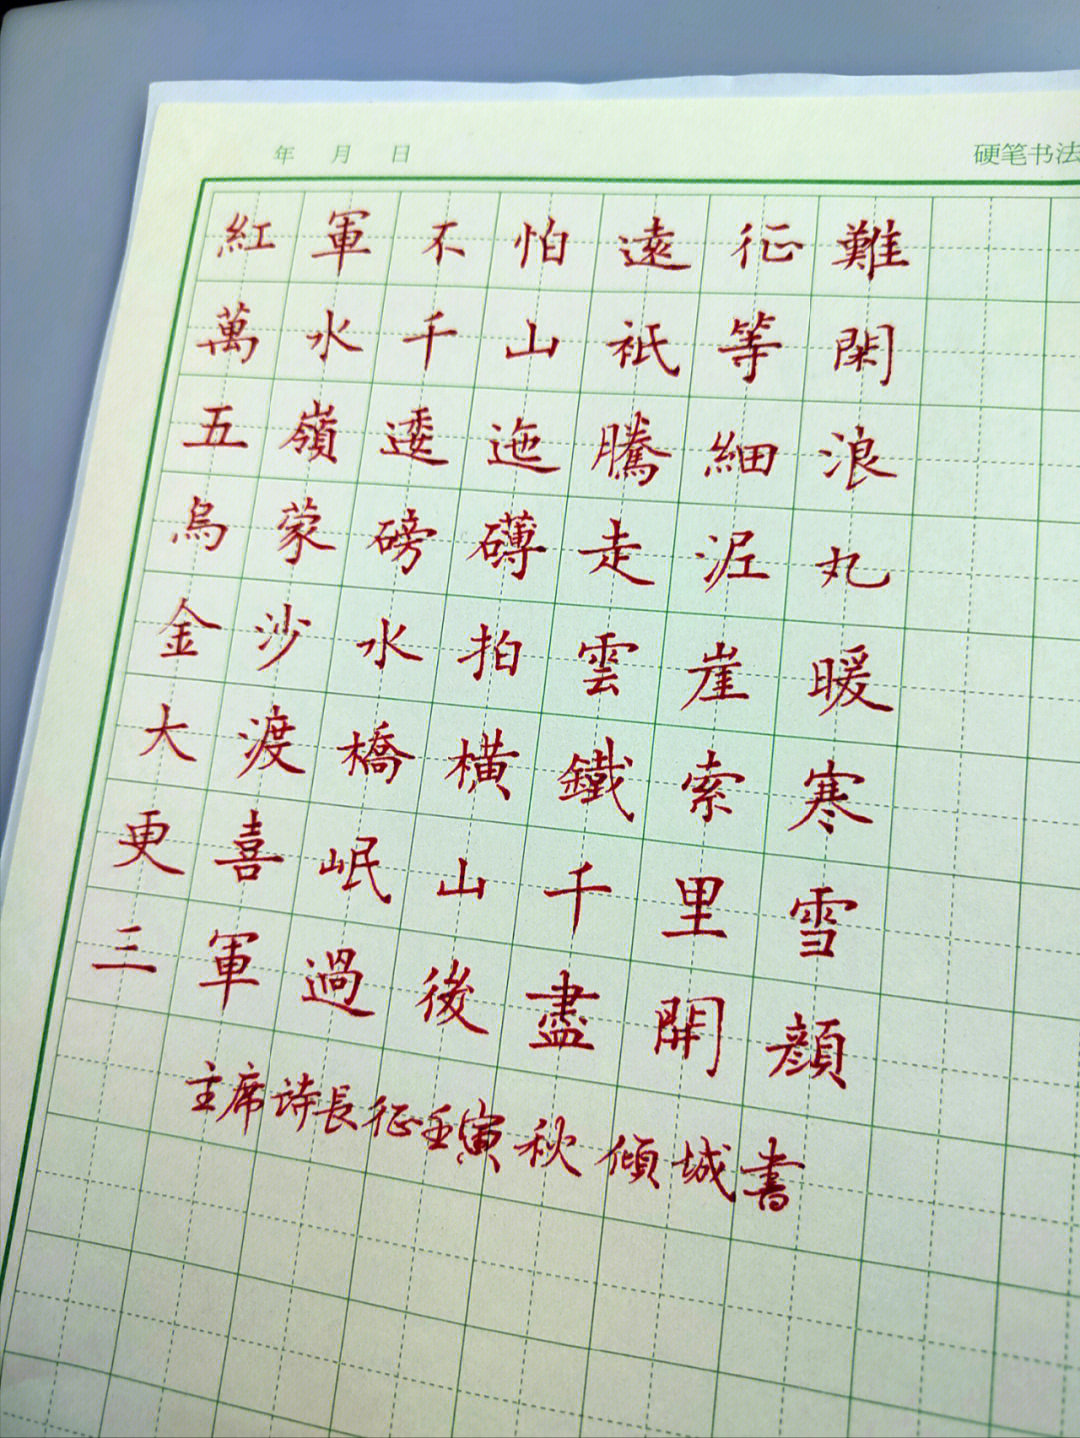 年 月 日
硬笔书法
紅軍不怕遠征難
萬水千山祇等閑
五嶺逶迤騰細浪
烏蒙磅礴走泥丸
金沙水拍雲崖暖
大渡橋橫鐵索寒
更喜岷山千里雪
三軍過後盡開顔
主席诗長征壬寅秋傾城書